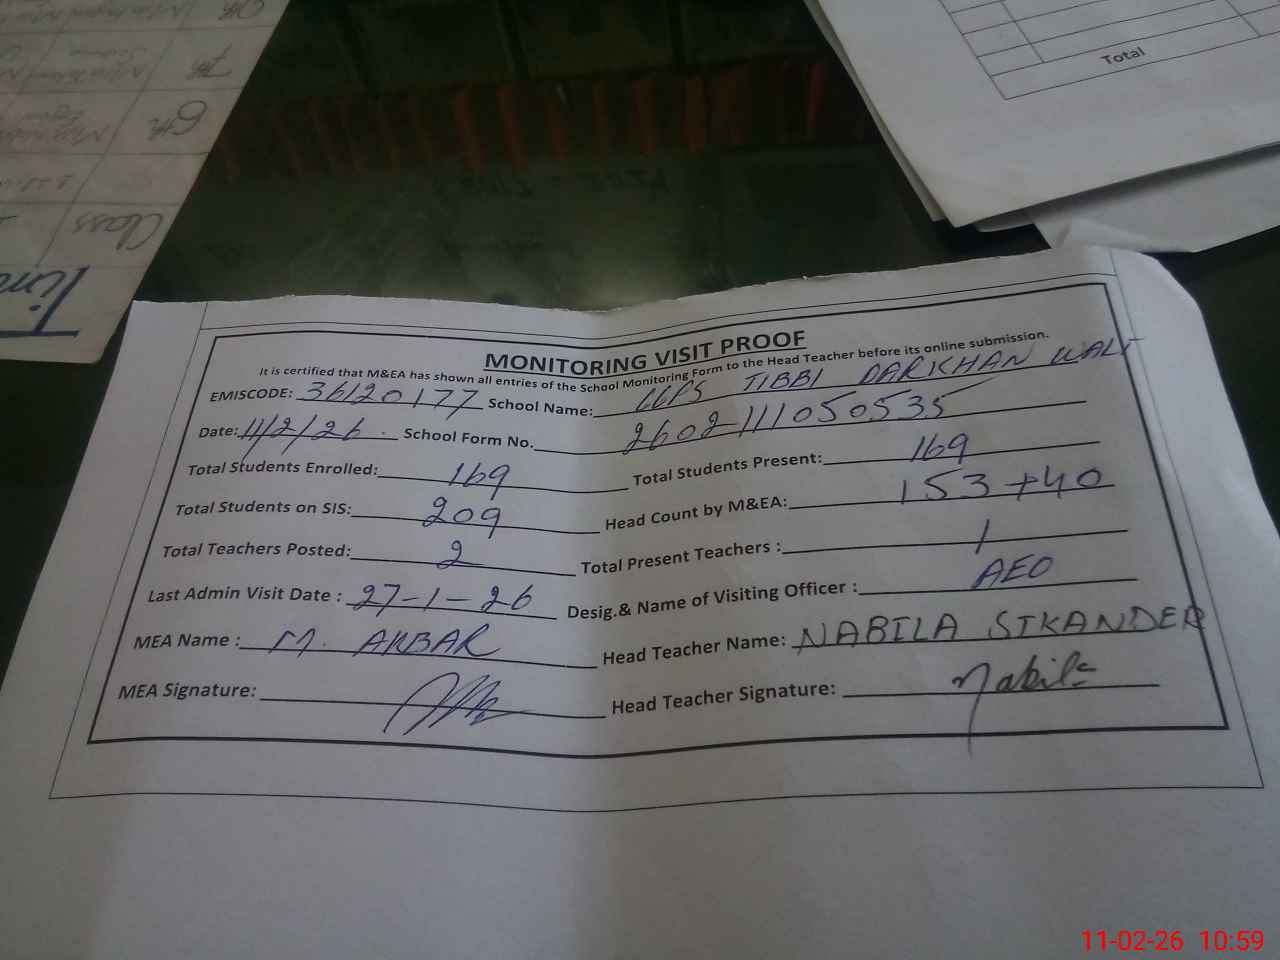 Total
Class
6th
7th
MONITORING VISIT PROOF
It is certified that M&EA has shown all entries of the School Monitoring Form to the Head Teacher before its online submission.
EMISCODE: 36120177 School Name: TIBBI DARKHAN WALI
Date: 11/2/26. School Form No. 2602-111050535
Total Students Enrolled: 169 Total Students Present: 169
Total Students on SIS: 209 Head Count by M&EA: 153+40
Total Teachers Posted: 2 Total Present Teachers : 1
Last Admin Visit Date : 27-1-26 Desig.& Name of Visiting Officer : AEO
MEA Name : M. AKBAR Head Teacher Name: NABILA SIKANDER
MEA Signature: Head Teacher Signature: Nabila
11-02-26 10:59